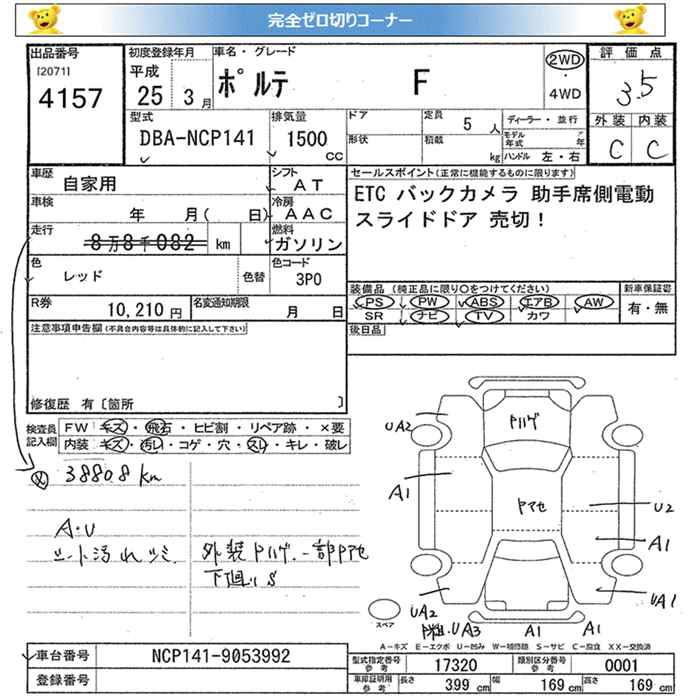 完全ゼロ切りコーナー
出品番号
[2071]
4157
初度登録年月
平成
25 3月
車名・グレード
ポルテ F
2WD
・
4WD
評価点
3.5
外装 内装
C C
型式
DBA-NCP141
排気量
1500
CC
ドア
形状
定員
5 人
積載
kg
ディーラー・並行
モデル年式 年
ハンドル 左・右
車歴
自家用
シフト
AT
車検
年 月( 日)
冷房
AAC
走行
8万8千082 km
燃料
ガソリン
色
レッド
色替
色コード
3P0
R券
10,210 円
名変通知期限
月 日
セールスポイント(正常に機能するものに限ります)
ETC バックカメラ 助手席側電動
スライドドア 売切!
装備品 (純正品に限り○をつけてください)
PS PW ABS エアB AW
SR ナビ TV カワ
新車保証書
有・無
後日品
注意事項申告欄(不具合内容等は具体的に記入して下さい)
修復歴 有〔箇所 〕
検査員
記入欄
FW キズ・飛石・ヒビ割・リペア跡・×要
内装 キズ・汚れ・コゲ・穴・スレ・キレ・破レ
38808km
A・U
シート汚れシミ
外装トハゲ.一部トアセ
下廻りS
トハゲ
UA2
A1
トアセ
U2
A1
UA1
UA2
UA3
A1
A1
スペア
A-キズ E-エクボ U-凹み W-補修跡 S-サビ C-腐食 XX-交換済
車台番号
NCP141-9053992
登録番号
型式指定番号
参考
17320
類別区分番号
参考
0001
車庫証明用
参考
長さ
399 cm
幅
169 cm
高さ
169 cm